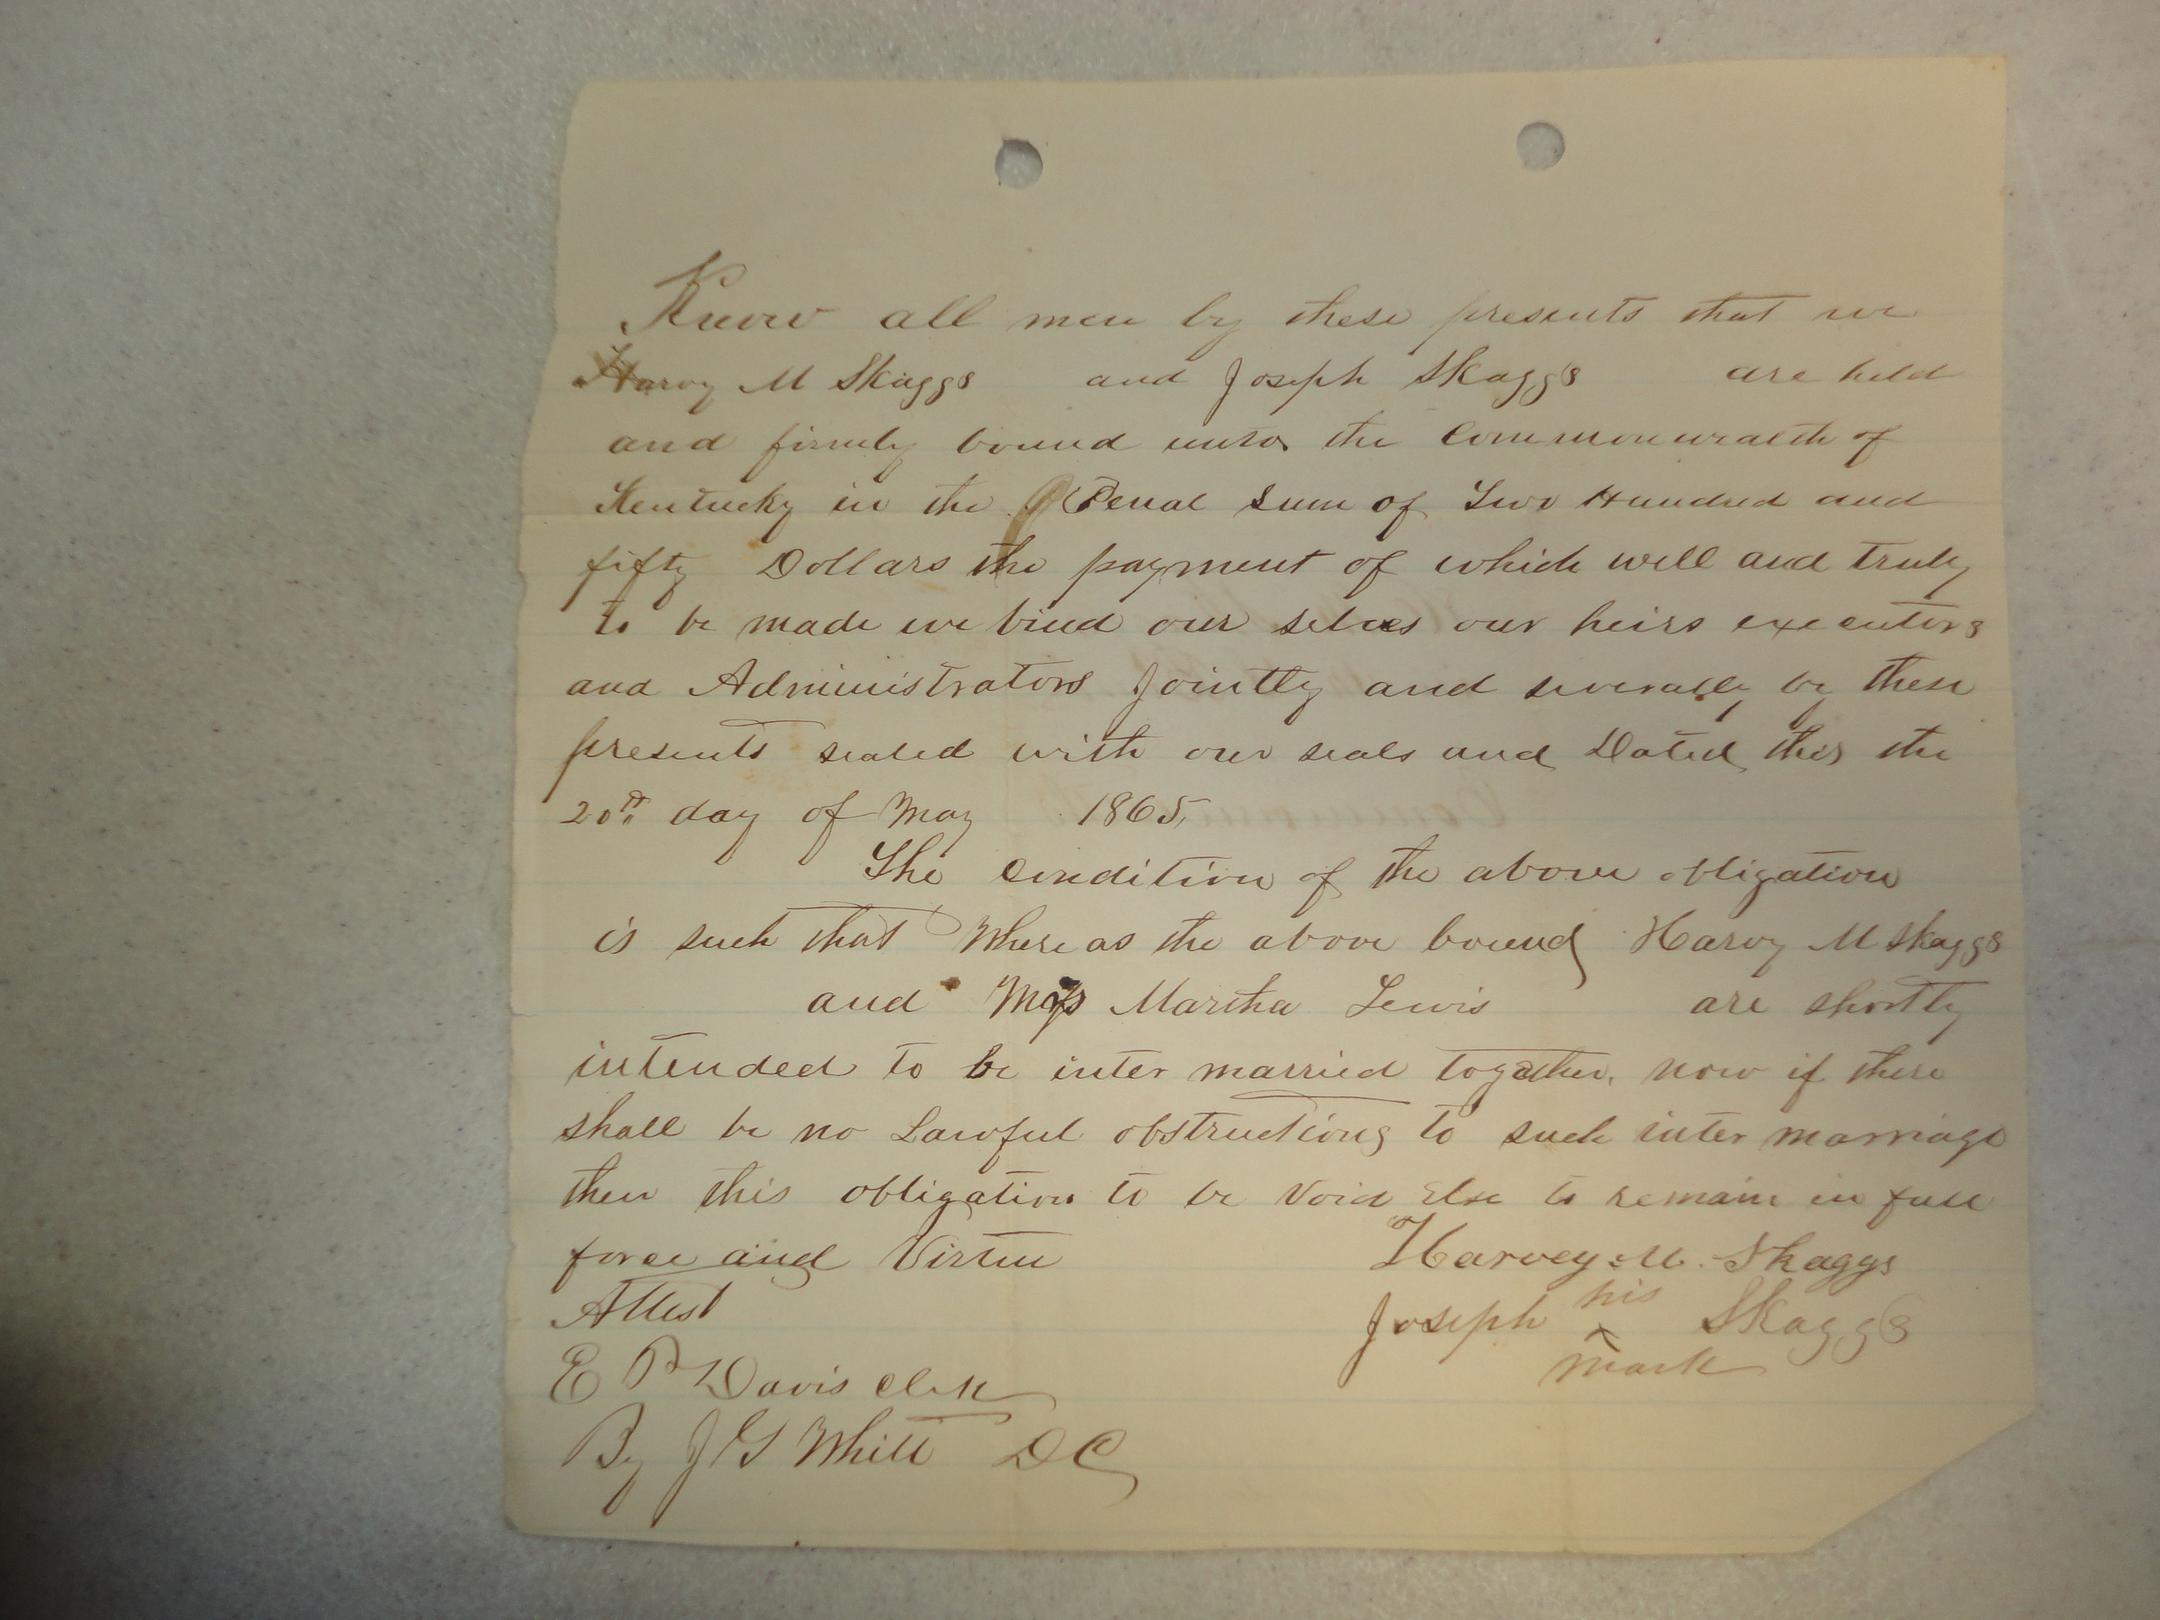 Know all men by these presents that we
Harvy M Skaggs and Joseph Skaggs are held
and firmly bound unto the Commonwealth of
Kentucky in the Penal sum of Two Hundred and
fifty Dollars the payment of which well and truly
to be made we bind our selves our heirs executors
and Administrators Jointly and severally by these
presents sealed with our seals and Dated this the
20th day of May 1865,
The condition of the above obligation
is such that Where as the above bound Harvy M Skaggs
and Martha Lewis are shortly
intended to be inter married together, now if there
shall be no Lawful obstructions to such inter marriage
then this obligation to be void Else to remain in full
force and Virtue Harvey M. Skaggs
Attest Joseph his x mark Skaggs
E P Davis Clk
By J G Whitt DC